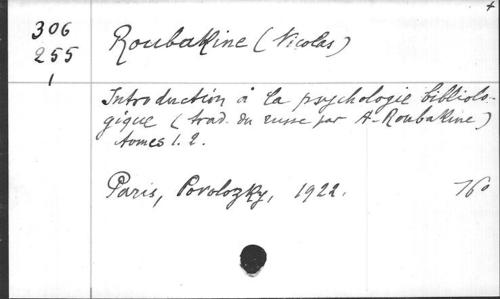 306
255
1
Roubakine (Nicolas)
Introduction à la psychologie bibliolo-
gique (trad. du russe par A-Roubakine)
tomes 1. 2.
Paris, Povolozky, 1922. 16°